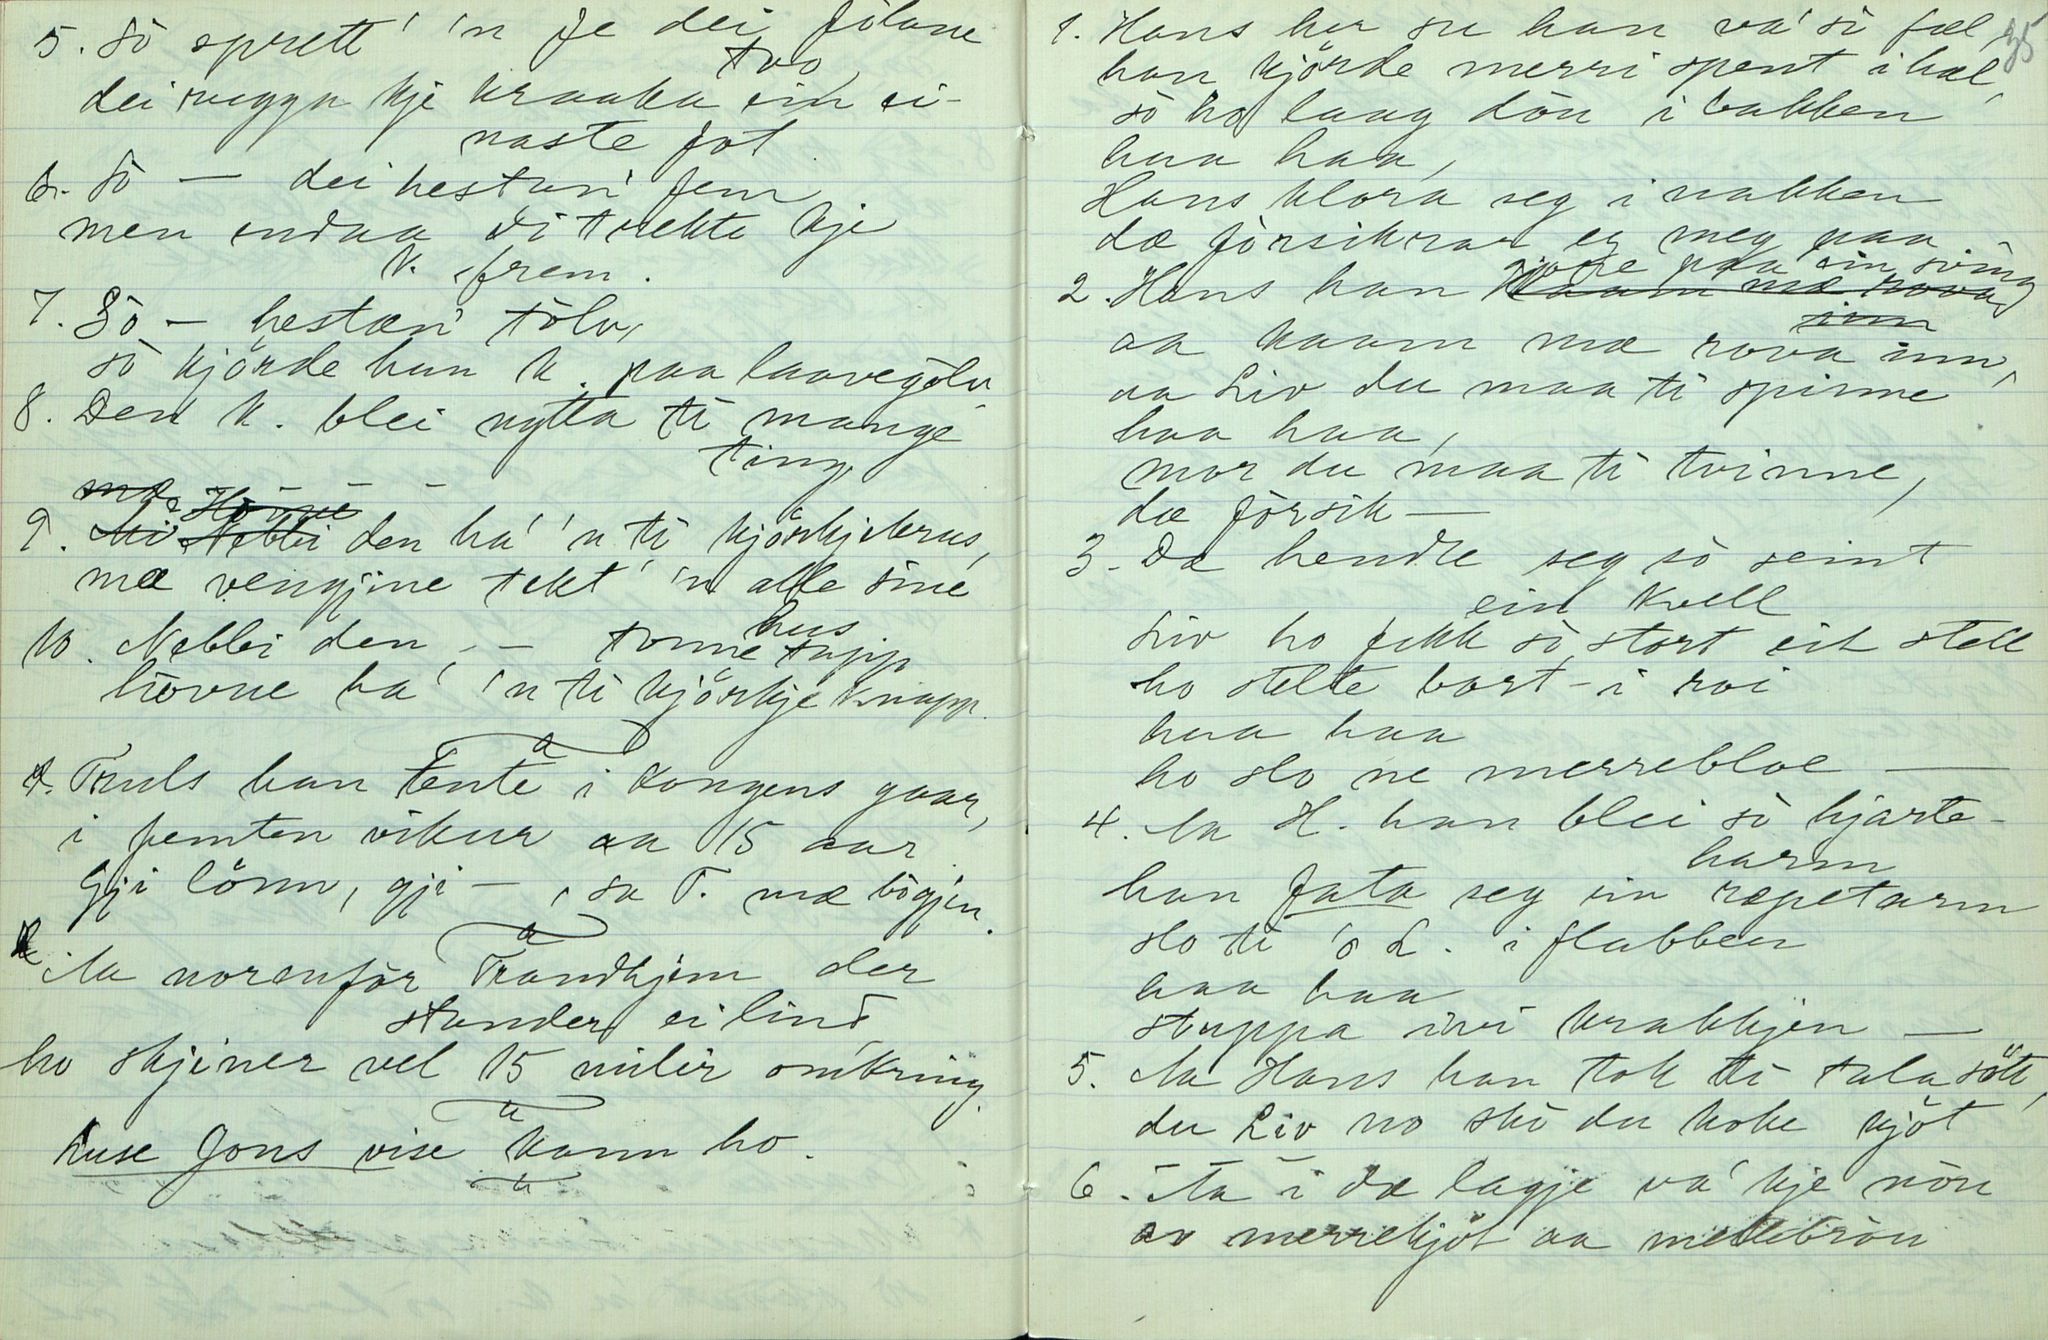 5. Sò sprett' 'n fe dei folane
tvo,
dei rugga kje kraaka ein ei-
naste fot.
6. Sò — dei hestan' fem
men endaa di trekte kje
k. frem.
7. Sò — hestæn' tolv,
sò kjörde han k. paa laavegòlv.
8. Den k. blei nytta ti mange
ting,
mæ Hòvne
9. Nebbi den ha' 'n ti kjörkjekrus,
mæ vengjine tekt' 'n alle sine
hus
10. Nebbi den — tonnetapp
hovne ha' 'n ti kjörkjeknapp.
Truls han tente i Kongens gaar,
i femten vikur aa 15 aar
Gji lönn, gji — , sa T. mæ bògjen.
Aa noranfòr Trondhjem der
stander ei lind
ho skjiner vel 15 milir omkring.
Luse Jons vise kann ho.
35
1. Hans her su han va' sò fæl,
han kjörde merri spent ihæl,
sò ho laag dòu i bakken
haa haa,
Hans klora seg i nakken
dæ fòrsikrar eg meg paa.
gjore paa sin sving
2. Hans han kaam mæ rova
inn
aa kaam mæ rova inn,
aa Liv du maa ti spinne
haa haa,
mor du maa ti tvinne,
dæ fòrsik —
3. Dæ hendte seg sò seint
ein kvell
Liv ho fekk sò stort eit stell
ho stellte bort i roi
haa haa
ho slo ne merrebloe —
4. Aa H. han blei sò hjarte-
harm
han fata seg ein ræpetarm
slo ti 'o L. i flabben
haa haa
stuppa ivi krakkjen —
5. Aa Hans han tok ti tala sött,
du Liv no ska du koke kjöt
6. Aa i dæ lagje va' kje nòn
av merrekjöt aa mellebròn